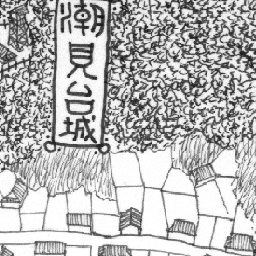 潮見台城